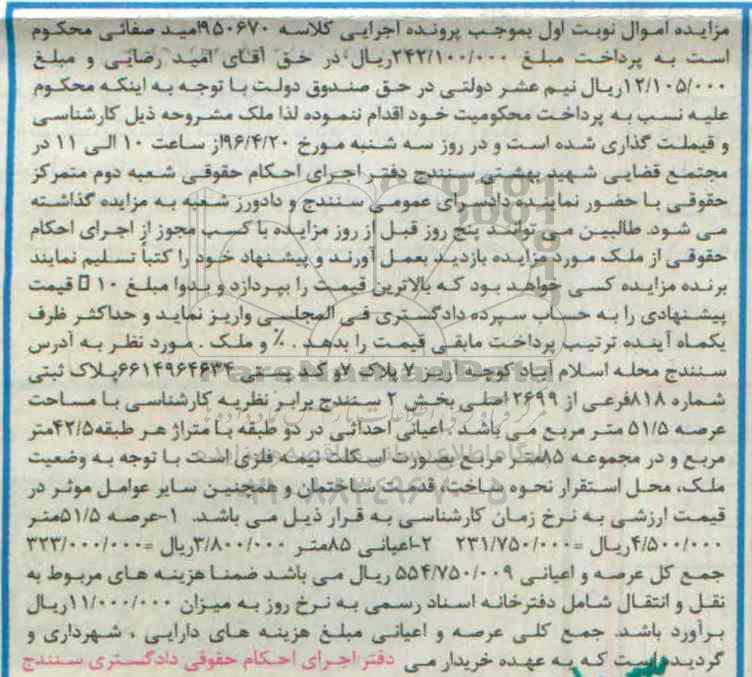 مزایده اموال نوبت اول بموجب پرونده اجرایی کلاسه ۹۵۰۶۷۰امید صفائی محکوم
است به پرداخت مبلغ ۲۴۲/۱۰۰/۰۰۰ریال در حق آقای امید رضایی و مبلغ
۱۲/۱۰۵/۰۰۰ریال نیم عشر دولتی در حق صندوق دولت با توجه به اینکه محکوم
علیه نسب به پرداخت محکومیت خود اقدام ننموده لذا ملک مشروحه ذیل کارشناسی
و قیملت گذاری شده است و در روز سه شنبه مورخ ۹۶/۴/۲۰از ساعت ۱۰ الی ۱۱ در
مجتمع قضایی شهید بهشتی سنندج دفتر اجرای احکام حقوقی شعبه دوم متمرکز
حقوقی با حضور نماینده دادسرای عمومی سنندج و دادورز شعبه به مزایده گذاشته
می شود. طالبین می توانند پنج روز قبل از روز مزایده با کسب مجوز از اجرای احکام
حقوقی از ملک مورد مزایده بازدید بعمل آورند و پیشنهاد خود را کتباً تسلیم نمایند
برنده مزایده کسی خواهد بود که بالاترین قیمت را بپردازد و بدوا مبلغ ۱۰ قیمت
پیشنهادی را به حساب سپرده دادگستری فی المجلسی واریز نماید و حداکثر ظرف
یکماه آینده ترتیب پرداخت مابقی قیمت را بدهد .٪ و ملک . مورد نظر به آدرس
سنندج محله اسلام آباد کوچه آریز ۷ پلاک ۷و کد پستی ۶۶۱۴۹۶۴۶۳۴پلاک ثبتی
شماره ۸۱۸فرعی از ۲۶۹۹اصلی بخش ۲ سنندج برابر نظریه کارشناسی با مساحت
عرصه ۵۱/۵ متر مربع می باشد . اعیانی احداثی در دو طبقه با متراژ هر طبقه۴۲/۵متر
مربع و در مجموعه ۸۵متر مربع بصورت اسکلت نیمه فلزی است با توجه به وضعیت
ملک، محل استقرار نحوه ساخت، قدمت ساختمان و همچنین سایر عوامل موثر در
قیمت ارزشی به نرخ زمان کارشناسی به قرار ذیل می باشد. ۱-عرصه ۵۱/۵متر
۴/۵۰۰/۰۰۰ریال =۲۳۱/۷۵۰/۰۰۰ ۲-اعیانی ۸۵متر ۳/۸۰۰/۰۰۰ریال =۳۲۳/۰۰۰/۰۰۰
جمع کل عرصه و اعیانی ۵۵۴/۷۵۰/۰۰۹ ریال می باشد ضمنا هزینه های مربوط به
نقل و انتقال شامل دفترخانه اسناد رسمی به نرخ روز به میزان ۱۱/۰۰۰/۰۰۰ریال
برآورد باشد. جمع کلی عرصه و اعیانی مبلغ هزینه های دارایی ، شهرداری و
گردیده است که به عهده خریدار می دفتر اجرای احکام حقوقی دادگستری سنندج
ParsNamadData